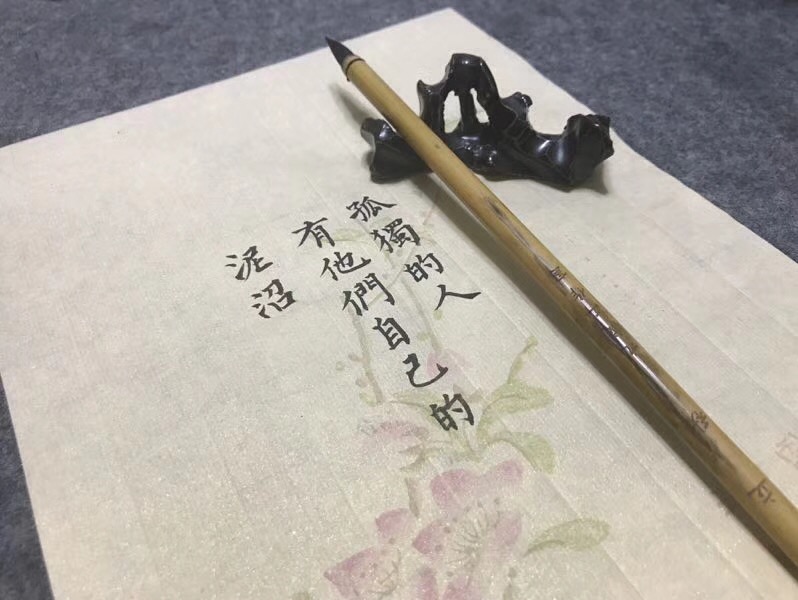 孤獨的人
有他們自己的
泥沼